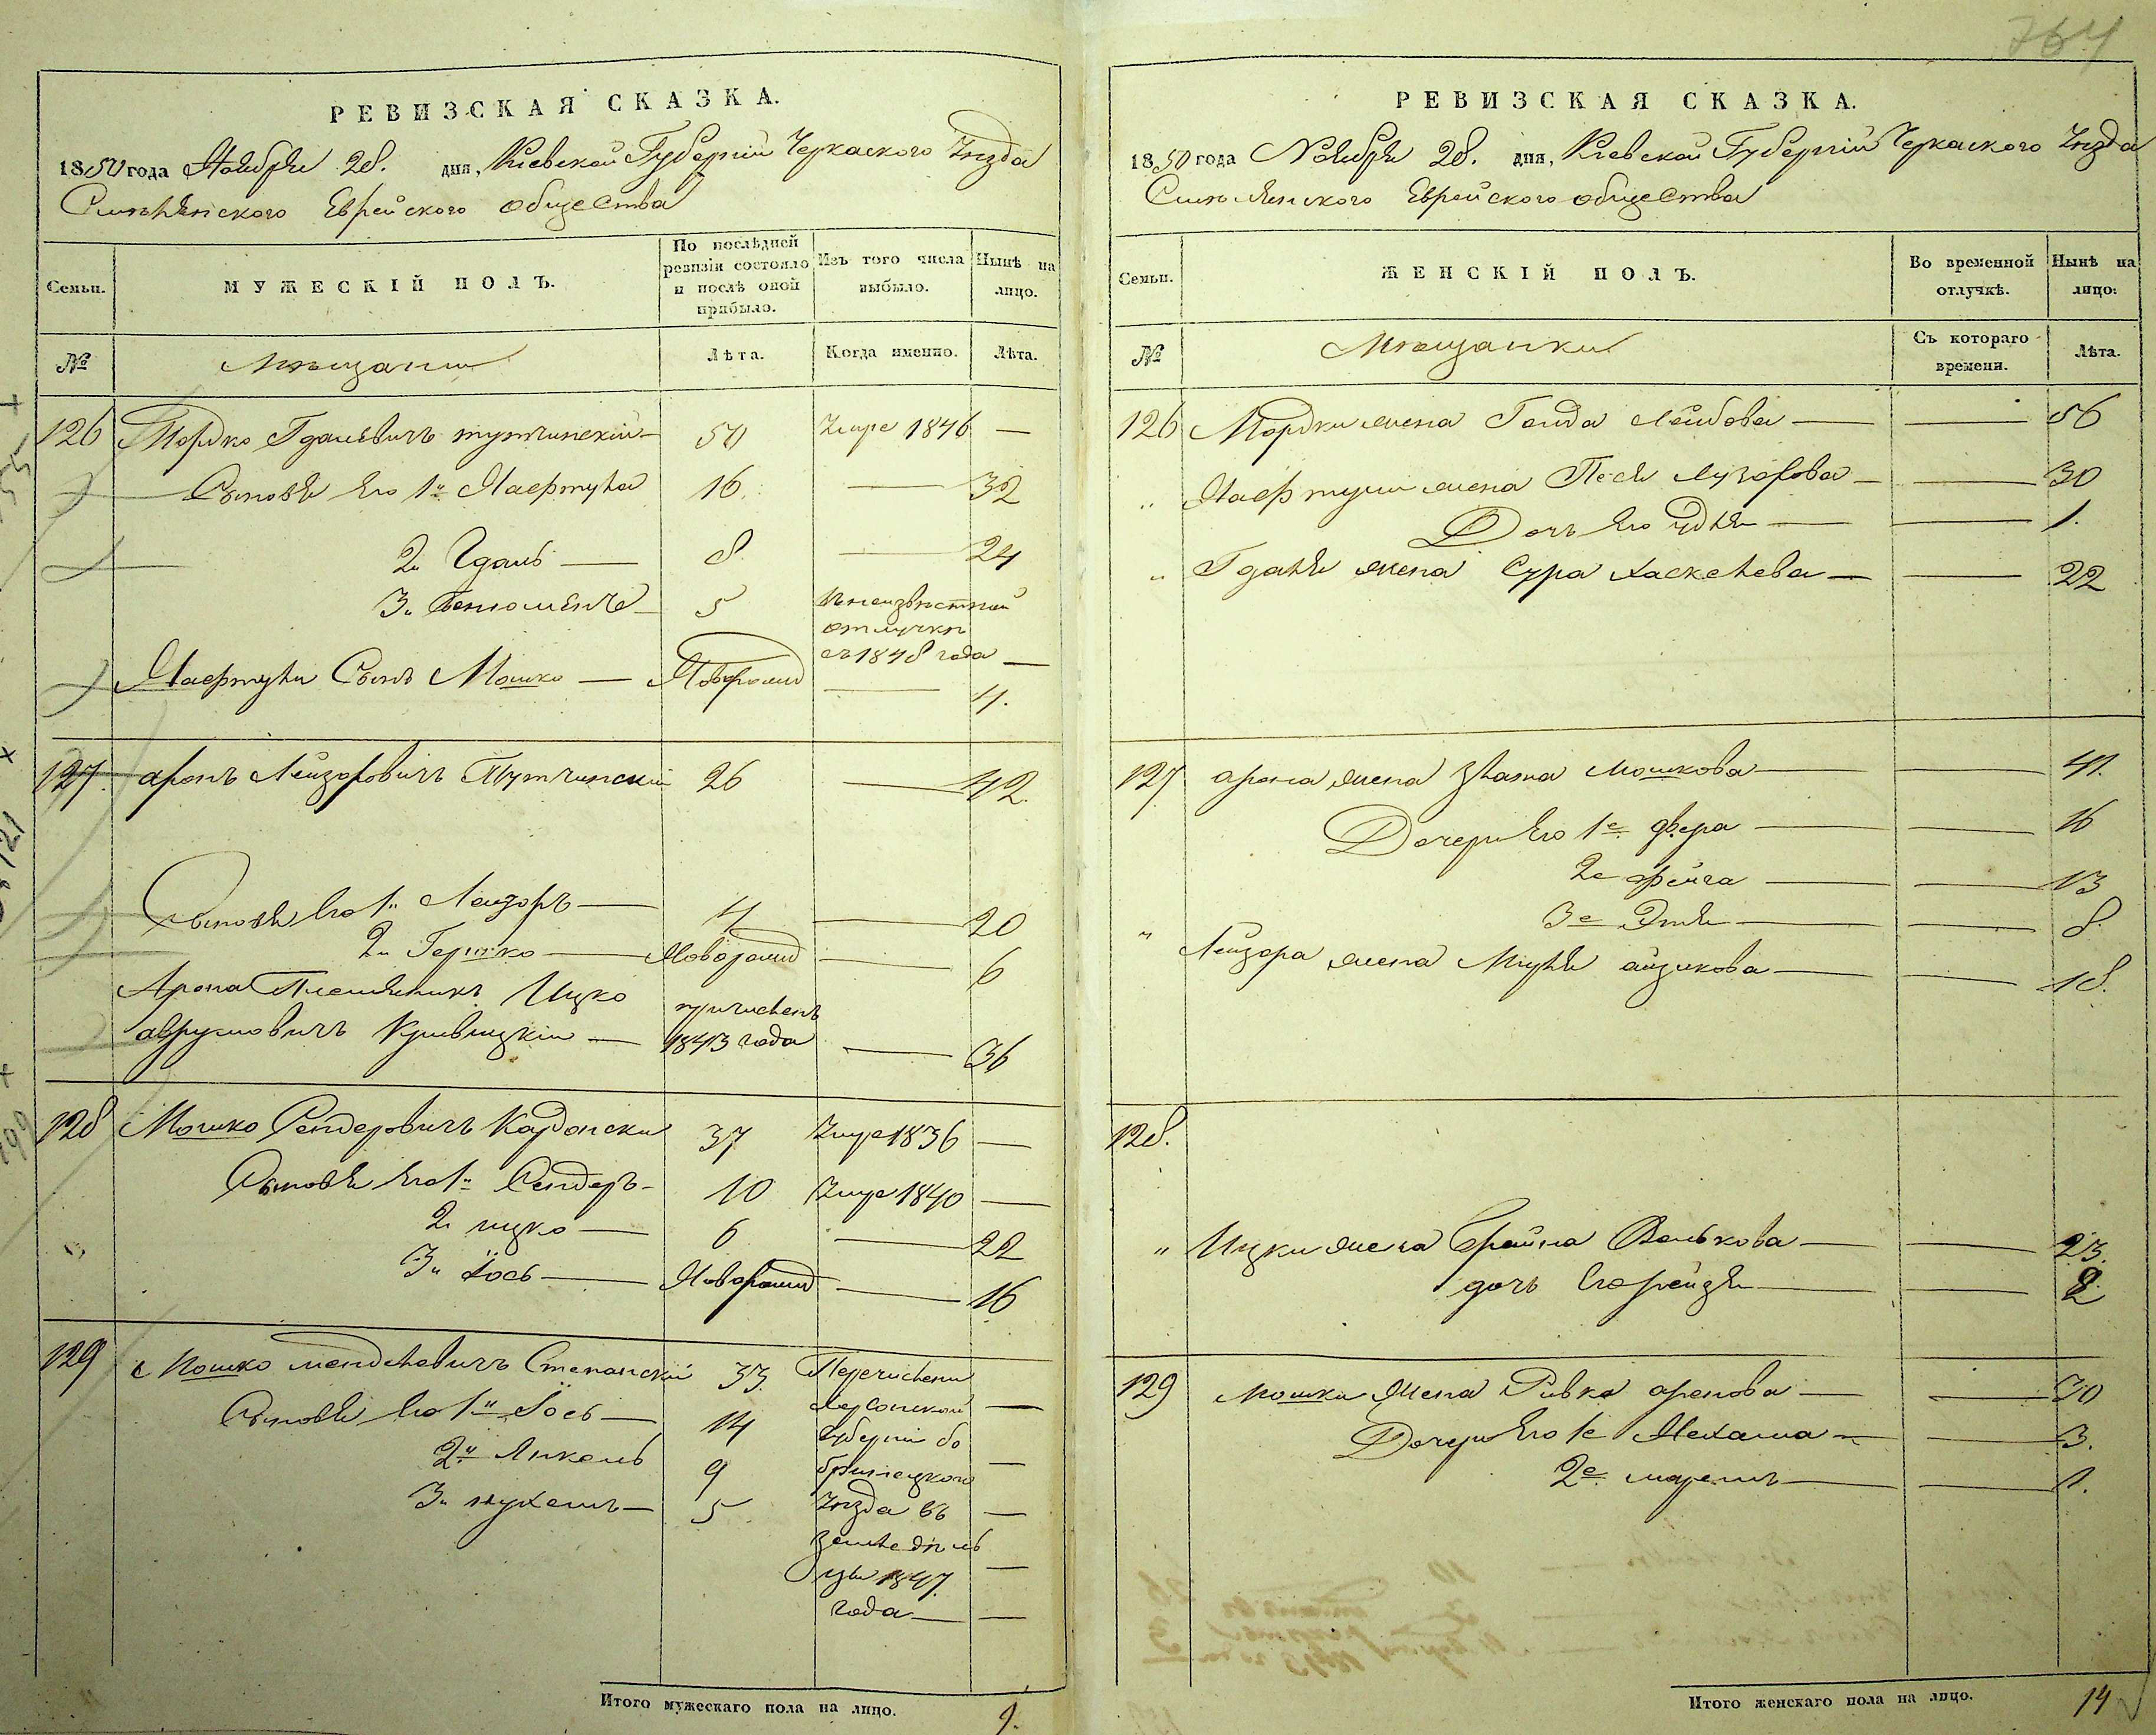 764
РЕВИЗСКАЯ СКАЗКА.
1850 года Ноября 28. дня, Киевской Губерніи Черкаского Уѣзда
Смѣлянского Еврейского общества
Семьи.
МУЖЕСКІЙ ПОЛЪ.
По послѣдней ревизіи состояло и послѣ оной прибыло.
Изъ того числа выбыло.
Нынѣ на лицо.
№
Мѣщани
Лѣта.
Когда именно.
Лѣта.
126 Мордко Гдалевичъ тутчинскій 50 Умре 1846 —
Сыновя Его 1й Нафтула 16 — 32
2й Гдаль — 8 — 24
3й 5 В неизвѣстной
отлучки
съ 1848 года —
Нафтулы Сынъ Мошко — Новорожд — 4.
127. аронъ Лейзоровичъ Тутчинскій 26 — 42.
Сыновя Его 1й Лейзоръ — 4 — 20
2й Гершко — Новорожд — 6
Арона Племянникъ Ицко причисленъ
аврумовичъ Кривицкій — 1843 года — 36
128 Мошко Сендеровичъ Кардонски 37 Умре 1836 —
Сыновя Его 1й Сендеръ — 10 Умре 1840 —
2й ицко — 6 — 22
3й Іось — Новорожд — 16
129 Мошко менделевичъ Степанскій 33. Перечислены —
Сыновя Его 1й Іось — 14 Херсонской
Губерніи бо
2й Янкель 9 бринецкого —
3й нухемъ — 5 Уѣзда въ —
земледѣль
цы 1847. —
года — —
Итого мужескаго пола на лицо. 9.
РЕВИЗСКАЯ СКАЗКА.
1850 года Ноября 28. дня, Киевской Губерніи Черкаского Уѣзда
Смѣлянского Еврейского общества
Семьи.
ЖЕНСКІЙ ПОЛЪ.
Во временной отлучкѣ.
Нынѣ на лицо.
№
Мѣщанки
Съ котораго времени.
Лѣта.
126 Мордки жена Генда Лейбова — — 56
" Нафтули жена Песя Лузорова — — 30
Дочъ Его — — 1.
" Гдаля жена Сура Хаскелева — — 22
127 арона жена Злата мошкова — — 41.
Дочери Его 1е двера — — 16
2е фейга — — 13
3е Этя — — 8.
" Лейзора жена айзикова — — 18.
128.
" Ицки жена Брайна Волькова — — 23.
дочъ Его рейзя — — 2.
129 мошки жена Ривка аронова — — 30
Дочери Его 1е Нехама — — 3.
2е — — 1.
Итого женскаго пола на лицо. 14